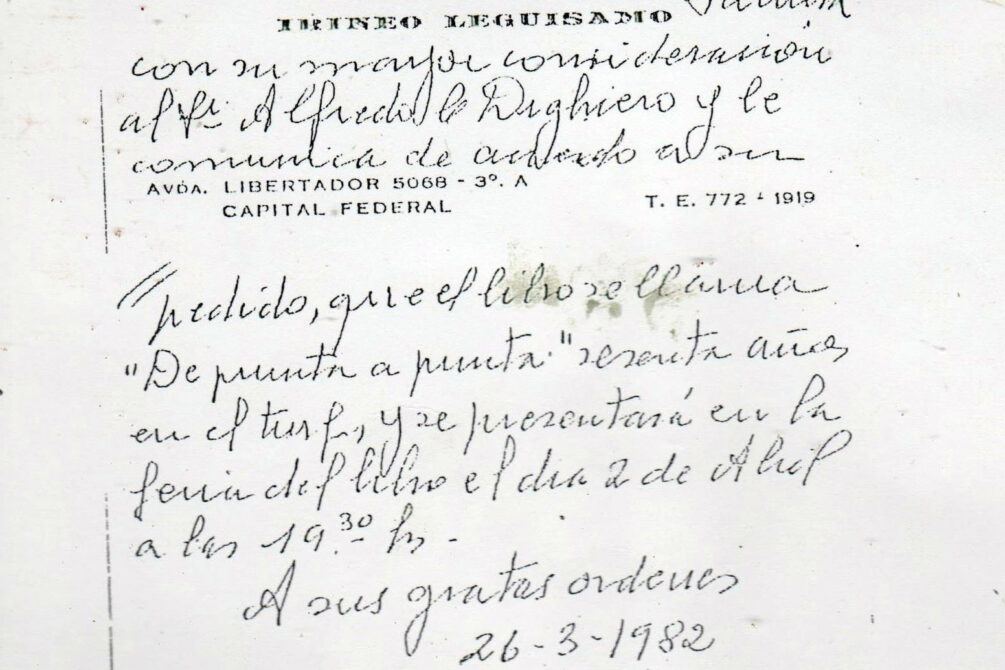 IRINEO LEGUISAMO
con su mayor consideración
al Sr. Alfredo C Dighiero y le
comunica de acuerdo a su
AVDA. LIBERTADOR 5068 - 3º. A
CAPITAL FEDERAL
T. E. 772 - 1919
// pedido, que el libro se llama
"De punta a punta" sesenta años
en el turf, y se presentará en la
feria del libro el dia 2 de Abril
a las 19.30 hs.-
A sus gratas ordenes
26-3-1982